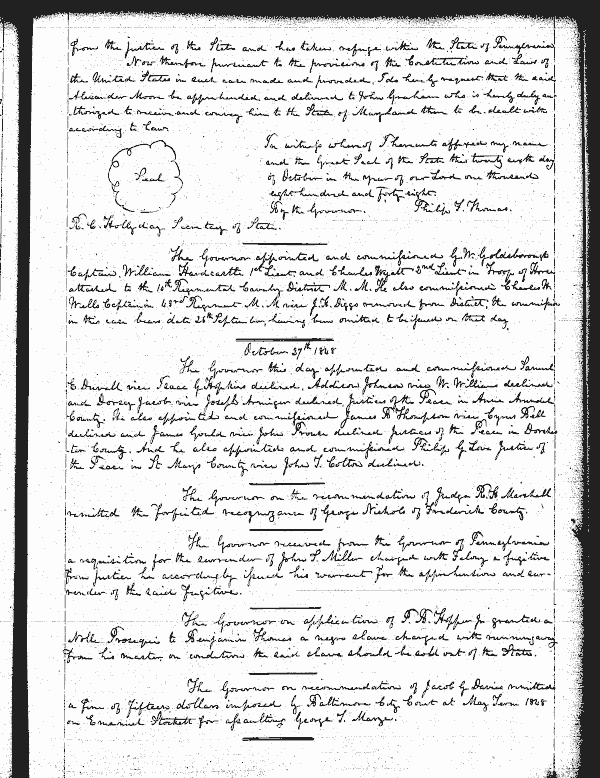 from the justice of the State and has taken refuge within the State of Pennsylvania
Now therefore pursuant to the provisions of the Constitution and Laws of
the United States in such case made and provided, I do hereby request that the said
Alexander Moore be apprehended and delivered to John Graham who is hereby duly au-
thorized to receive and convey him to the State of Maryland there to be dealt with
according to Law.
Seal
In witness whereof I hereunto affixed my name
and the Great Seal of the State this twenty day
of October in the year of our Lord one thousand
eight hundred and forty eight.
By the Governor. Philip F. Thomas.
R. C. Hollyday Secretary of State.
The Governor appointed and commissioned G. W. Goldsborough
Captain, William Hardcastle 1st Lieut. and Charles Wyatt 2nd Lieut in Troop of Horse
attached to the 10th Regimental Cavalry District M. M. He also commissioned Charles W.
Wells Captain in 43rd Regiment M. M. vice J. H. Diggs removed from District, the commission
in this case bears date 26th September, having been omitted to be issued on that day.
October 27th 1848
The Governor this day appointed and commissioned Samuel
E. Duvall vice Isaac G. Hopkins declined, Addison Johnson vice W. Williams declined
and Dorsey Jacob vice Joseph Armiger declined Justices of the Peace in Anne Arundel
County. He also appointed and commissioned James B. Thompson vice Cyrus Bell
declined and James Gould vice John Prouse declined Justices of the Peace in Dorches
-ter County. And he also appointed and commissioned Philip G. Love Justice of
the Peace in St. Marys County vice John T. Colton declined.
The Governor on the recommendation of Judge R. H. Marshall
remitted the forfeited recognizance of George Nichols of Frederick County.
The Governor received from the Governor of Pennsylvania
a requisition for the surrender of John S. Miller charged with Felony a fugitive
from justice he accordingly issued his warrant for the apprehension and sur-
render of the said fugitive.
The Governor on application of P. B. Hopper Jr granted a
Nolle Prosequi to Benjamin Thomas a negro slave charged with running away
from his master, on condition the said slave should be sold out of the State.
The Governor on recommendation of Jacob G. Davies remitted
a fine of fifteen dollars imposed by Baltimore City Court at May Term 1848
on Emanuel Stockett for assaulting George T.